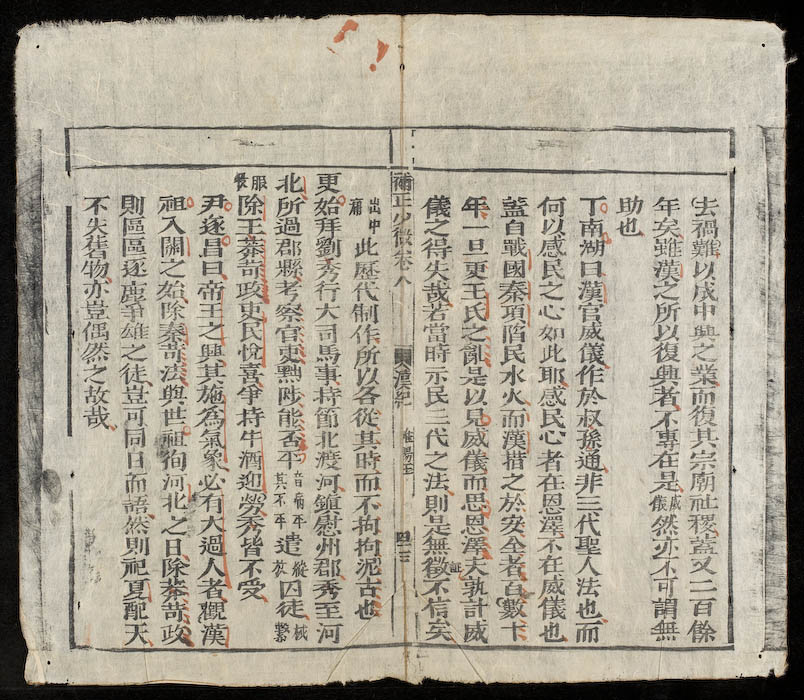 去禍難以成中興之業而復其宗廟社稷蓋又二百餘
年矣雖漢之所以復興者不專在是威儀然亦不可謂無
助也
丁南湖曰漢官威儀作於叔孫通非三代聖人法也而
何以感民之心如此耶感民心者在恩澤不在威儀也
蓋自戰國秦項陷民水火而漢措之於安全者百數十
年一旦更王氏之亂是以見威儀而思恩澤夫孰計威
儀之得失哉若當時示民二代之法則是無徵証不信矣
補正少微卷八 漢紀 淮陽王 四十三
出中庸此歷代制作所以各從其時而不拘拘泥古也
更始拜劉秀行大司馬事持節北渡河鎮慰州郡秀至河
北所過郡縣考察官吏黜陟能否平音病平其不平遣縱放囚徒械繫
除王莽苛政吏民悅喜爭持牛酒迎勞秀皆不受
尹遂昌曰帝王之興其施為氣象必有大過人者觀漢
祖入關之始除秦苛法與世祖徇河北之日除莽苛政
則區區逐鹿爭雄之徒豈可同日而語然則祀夏配天
不失舊物亦豈偶然之故哉